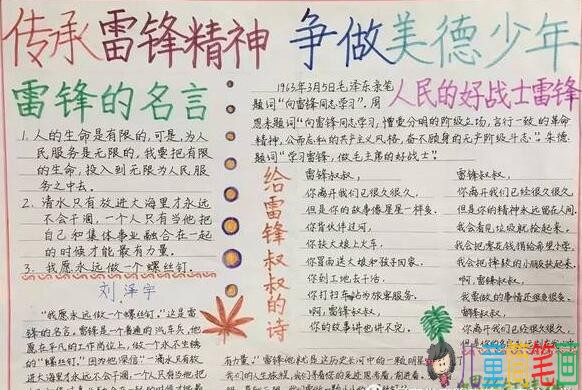 传承雷锋精神 争做美德少年
雷锋的名言
1. 人的生命是有限的,可是,为人
民服务是无限的,我要把有限
的生命,投入到无限为人民服
务之中去。
2. 清水只有放进大海里才永远
不会干涸,一个人只有当他把
自己和集体事业融合在一起
的时候才能最有力量。
3. 我愿永远做一个螺丝钉。
刘泽宇
"我愿永远做一个螺丝钉。"这是雷
锋的名言,雷锋是一个普通的汽车兵,他
愿在平凡的工作岗位上,做一个永不生锈
的"螺丝钉。"因为他深信"一滴水只有放
人民的好战士雷锋
1963年3月5日毛泽东亲笔
题词"向雷锋同志学习"。周
恩来题词"向雷锋同志学习,憎爱分明的阶级立场,言行一致的革命
精神,公而忘私的共产主义风格,奋不顾身的无产阶级斗志。"朱德
题词"学习雷锋,做毛主席的好战士"。
给雷锋叔叔的诗
雷锋叔叔,
你离开我们已很久很久,
但是你的故事像星星一样多。
你背伙伴过河,
你扶大娘上火车,
你冒雨送大娘和孩子回家,
你到工地去干活,
你打扫车站为旅客服务,
啊,雷锋叔叔,
你的故事讲也讲不完。
雷锋叔叔,
你离开我们已经很久很久,
但是你的精神永远留在人间。
我会看见垃圾就捡起来,
我会把零花钱捐给希望小学,
我会把摔跤的小朋友扶起来,
啊,雷锋叔叔,
我要做的事情还很多很多。
雷锋叔叔,
你离开我们
有力量。"雷锋他就是这历史长河中的一颗明
我们的人生旅程,我们寻着你的足迹思考着,前进着,
儿童简笔画